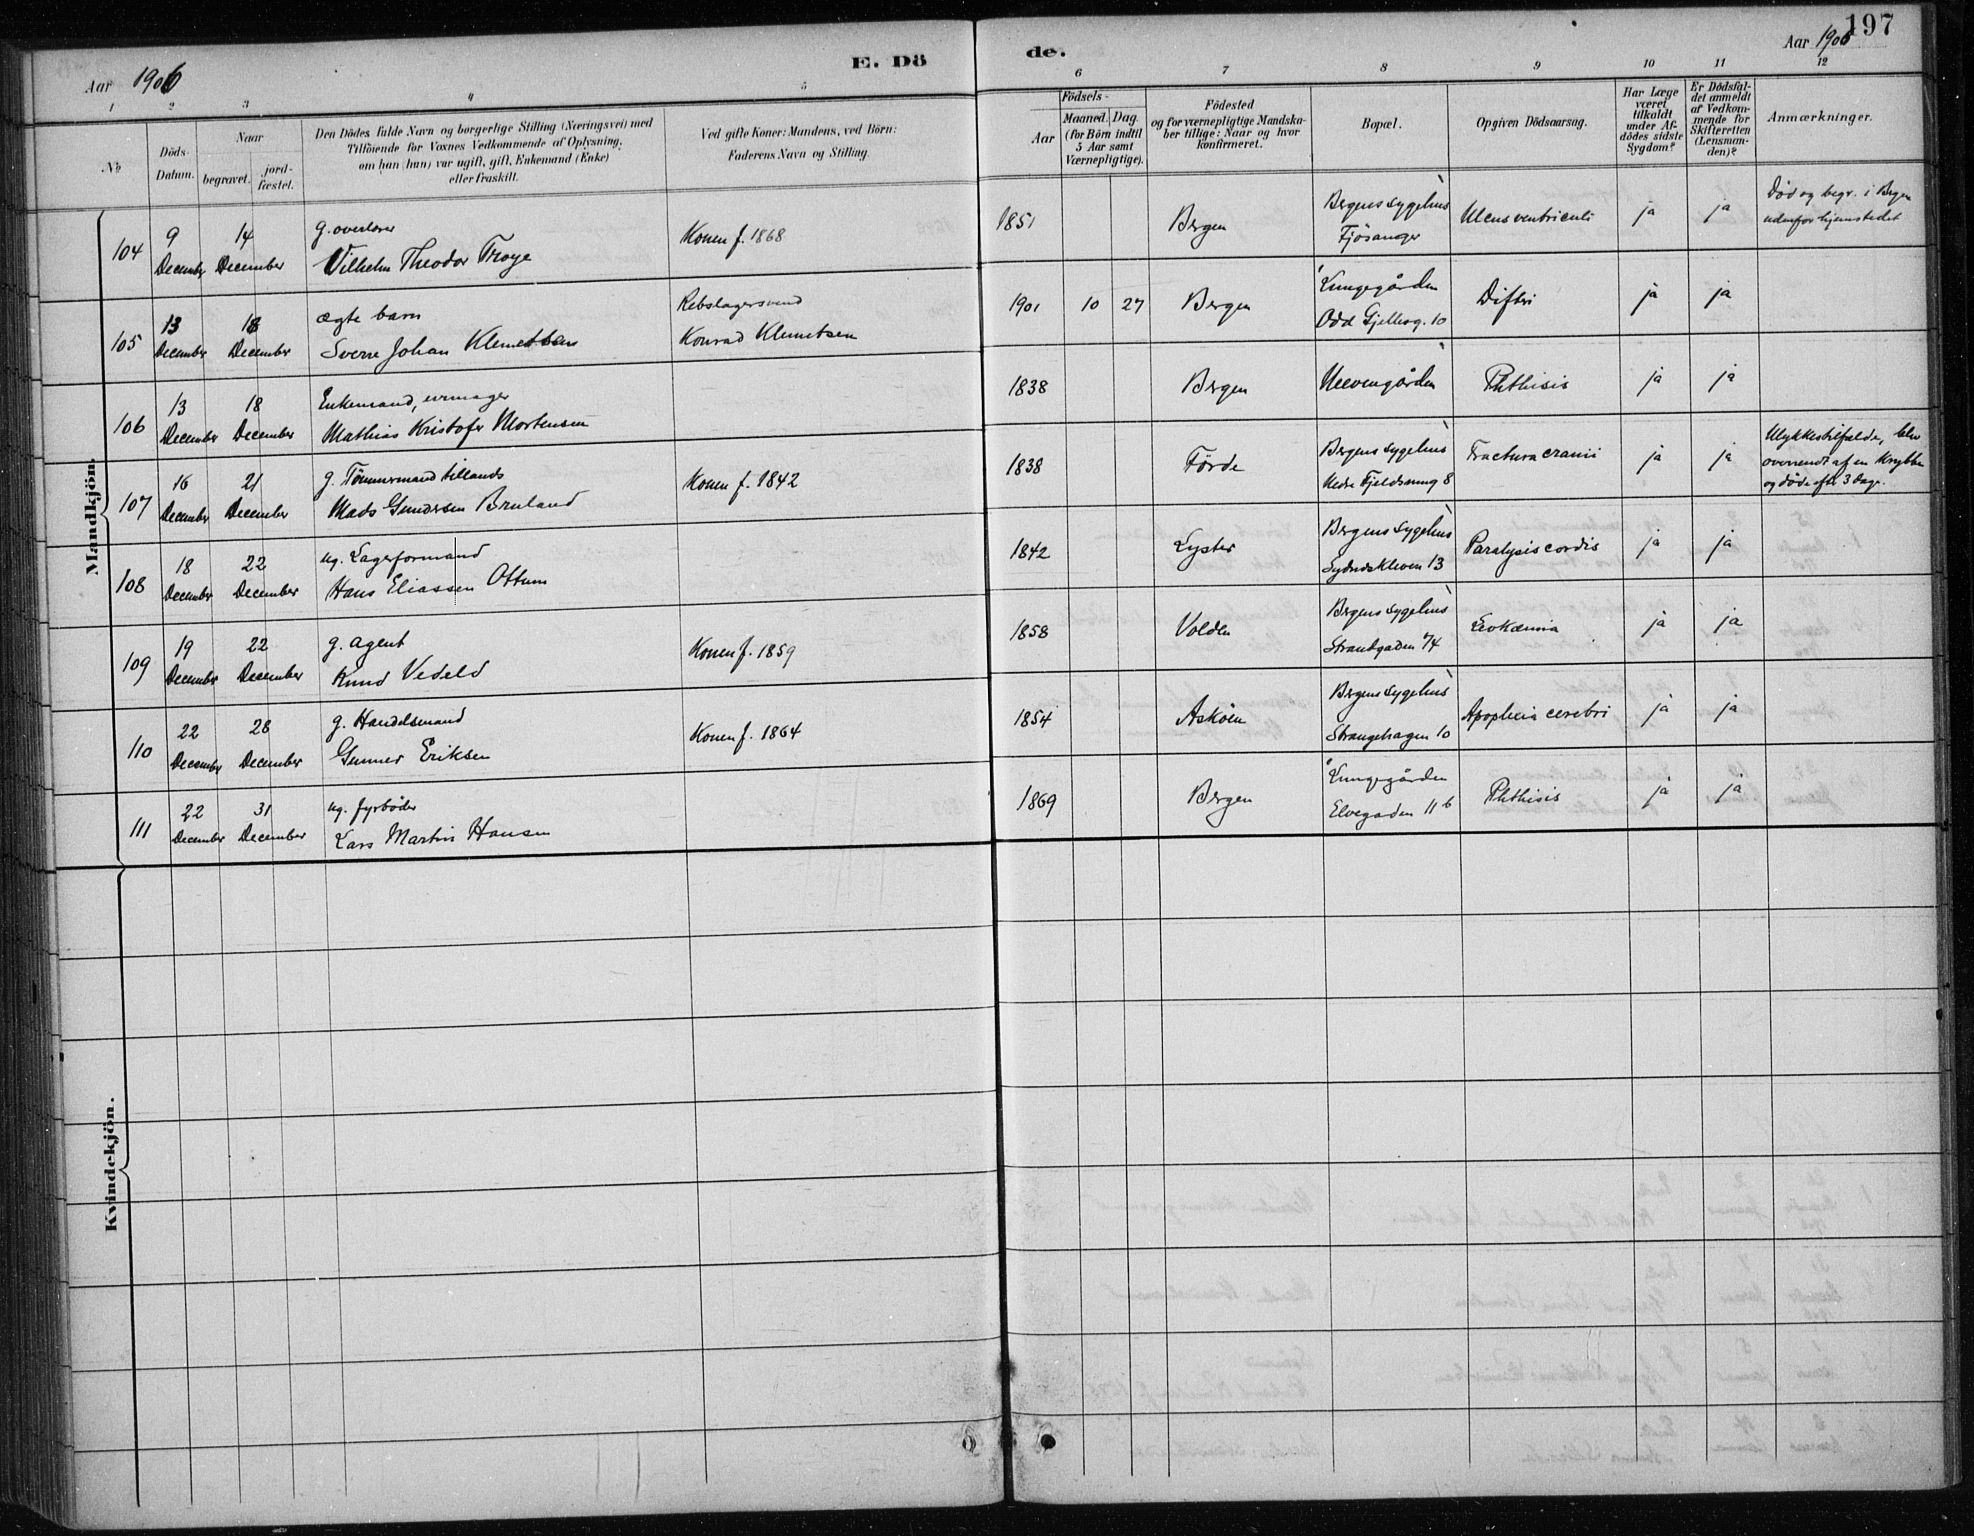 197
Aar 1906
E. Dö
de.
Aar 1906
1 2 3 4 5 6 7 8 9 10 11 12
No
Döds-
Datum.
Naar
begravet.
jord-
fæstet.
Den Dödes fulde Navn og borgerlige Stilling (Næringsvei) med
Tilföiende for Voxnes Vedkommende af Oplysning,
om han (hun) var ugift, gift, Enkemand (Enke)
eller fraskilt.
Ved gifte Koner: Mandens, ved Börn:
Faderens Navn og Stilling.
Födsels-
Aar
Maaned.
Dag.
(for Börn indtil
5 Aar samt
Værnepligtige).
Födested
og for værnepligtige Mandska-
ber tillige: Naar og hvor
konfirmeret.
Bopæl.
Opgiven Dödsaarsag.
Har Læge
været
tilkaldt
under Af-
dödes sidste
Sygdom?
Er Dödsfal-
det anmeldt
af Vedkom-
mende for
Skifteretten
(Lensman-
den)?
Anmærkninger.
Mandkjön.
104
9 December
14 December
g. overlærer
Vilhelm Theodor Troye
Konen f. 1868
1851
Bergen
Bergens Sygehus
Fjösanger
Ulcus ventriculi
ja
ja
Död og begr. i Bergen
udenfor hjemstedet
105
13 December
18 December
ægte barn
Sverre Johan Klemetsen
Rebslagersvend
Konrad Klemetsen
1901 10 27
Bergen
Lungegården
Odd Gjellesg. 10
Difteri
ja
ja
106
13 December
18 December
Enkemand, urmager
Mathias Kristofer Mortensen
1838
Bergen
Ulevengården
Phthisis
ja
ja
107
16 December
21 December
g. Tömmermand tillands
Mads Gundersen Bruland
Konen f. 1842
1838
Förde
Bergens Sygehus
Nedre Fjeldsmug 8
Fractura cranii
ja
ja
Ulykkestilfælde, blev
overrendt af en Krybbe
og döde efter 3 Dage.
108
18 December
22 December
ug. Lagerformand
Hans Eliassen Ottum
1842
Lyster
Bergens Sygehus
Sydneskleven 13
Paralysis cordis
ja
ja
109
19 December
22 December
g. agent
Knud Vedeld
Konen f. 1859
1858
Volden
Bergens Sygehus
Strandgaden 74
Levkæmia
ja
ja
110
22 December
28 December
g. Handelsmand
Gunner Eriksen
Konen f. 1864
1854
Asköen
Bergens Sygehus
Strangehagen 10
Apoplexia cerebri
ja
ja
111
22 December
31 December
ug. fyrböder
Lars Martin Hansen
1869
Bergen
Lungegården
Elvegaden 11 b
Phthisis
ja
ja
Kvindekjön.